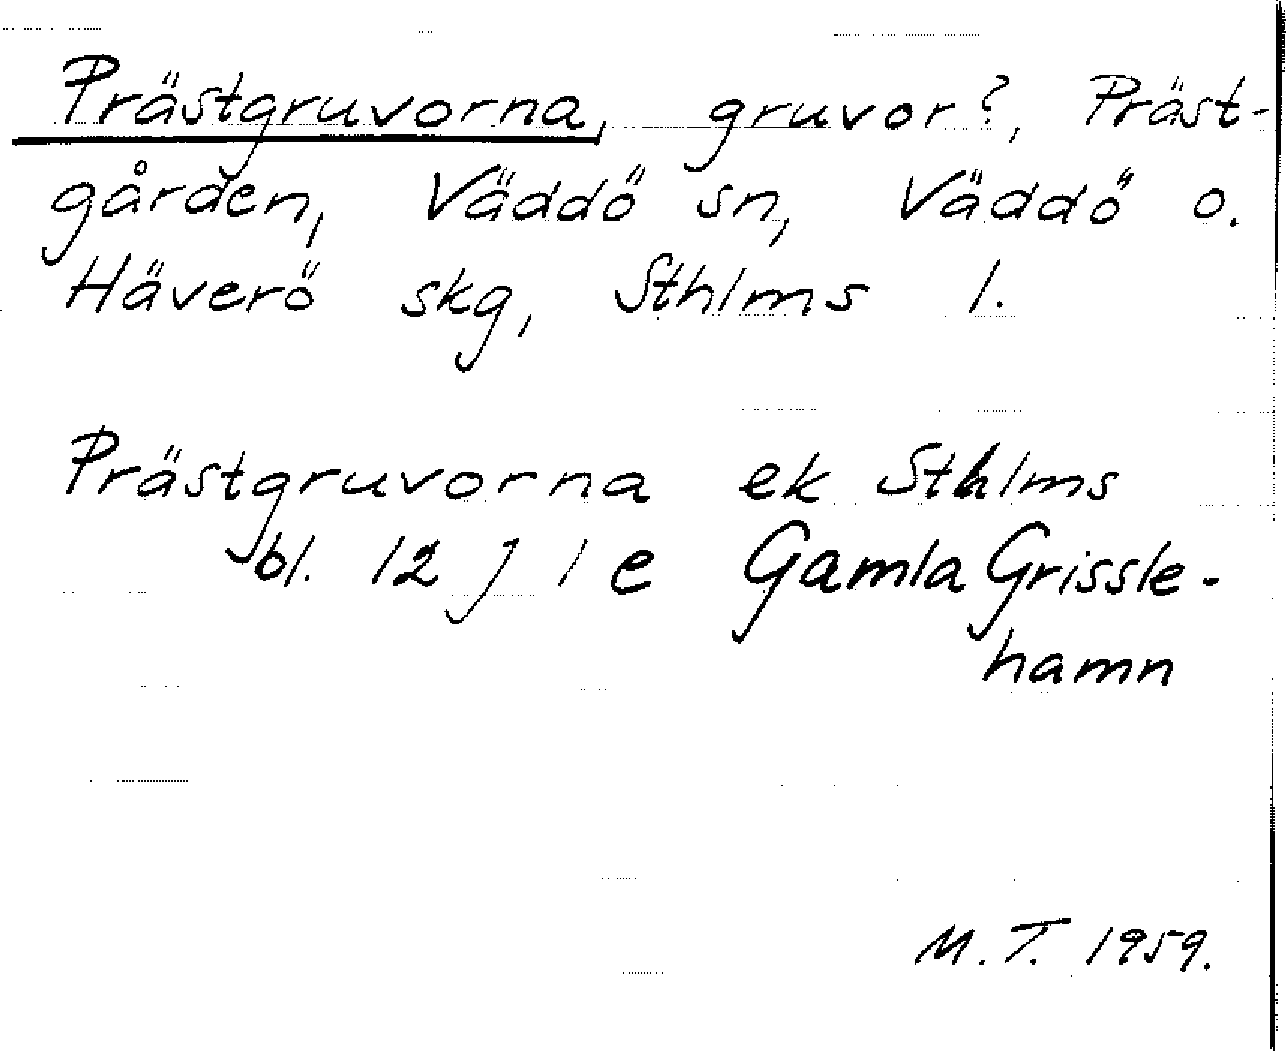 Prästgruvorna, gruvor?, Präst-
gården, Väddö sn, Väddö o.
Häverö skg, Sthlms l.
Prästgruvorna ek Sthlms
bl. 12 J 1 e Gamla Grissle-
hamn
M.T. 1959.